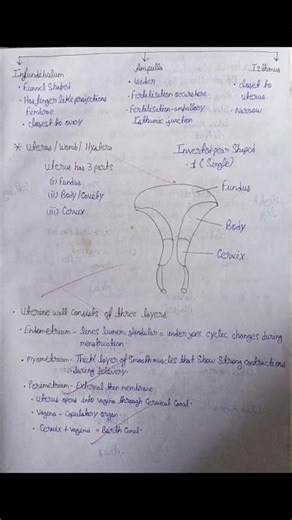 Infundibulum
• Funnel Shaped
• Has finger like projections
fimbriae
• closest to ovary
Ampulla
• Wider
• Fertilisation occurs here
• Fertilisation - ampullary
Isthmic junction
Isthmus
• closest to
uterus
• Narrow
* Uterus / Womb / Hystera
Uterus has 3 parts
(i) Fundus
(ii) Body / Cavity
(iii) Cervix
Inverted pear Shaped
• 1 (Single)
Fundus
Body
Cervix
• Uterine wall consists of three layers
• Endometrium - lines lumen, glandular & undergoes cyclic changes during
menstruation
• Myometrium - Thick layer of smooth muscles that show strong contractions
during delivery.
• Perimetrium - External thin membrane
• Uterus opens into vagina through Cervical Canal.
• Vagina - Copulatory organ.
• Cervix + Vagina = Birth Canal.